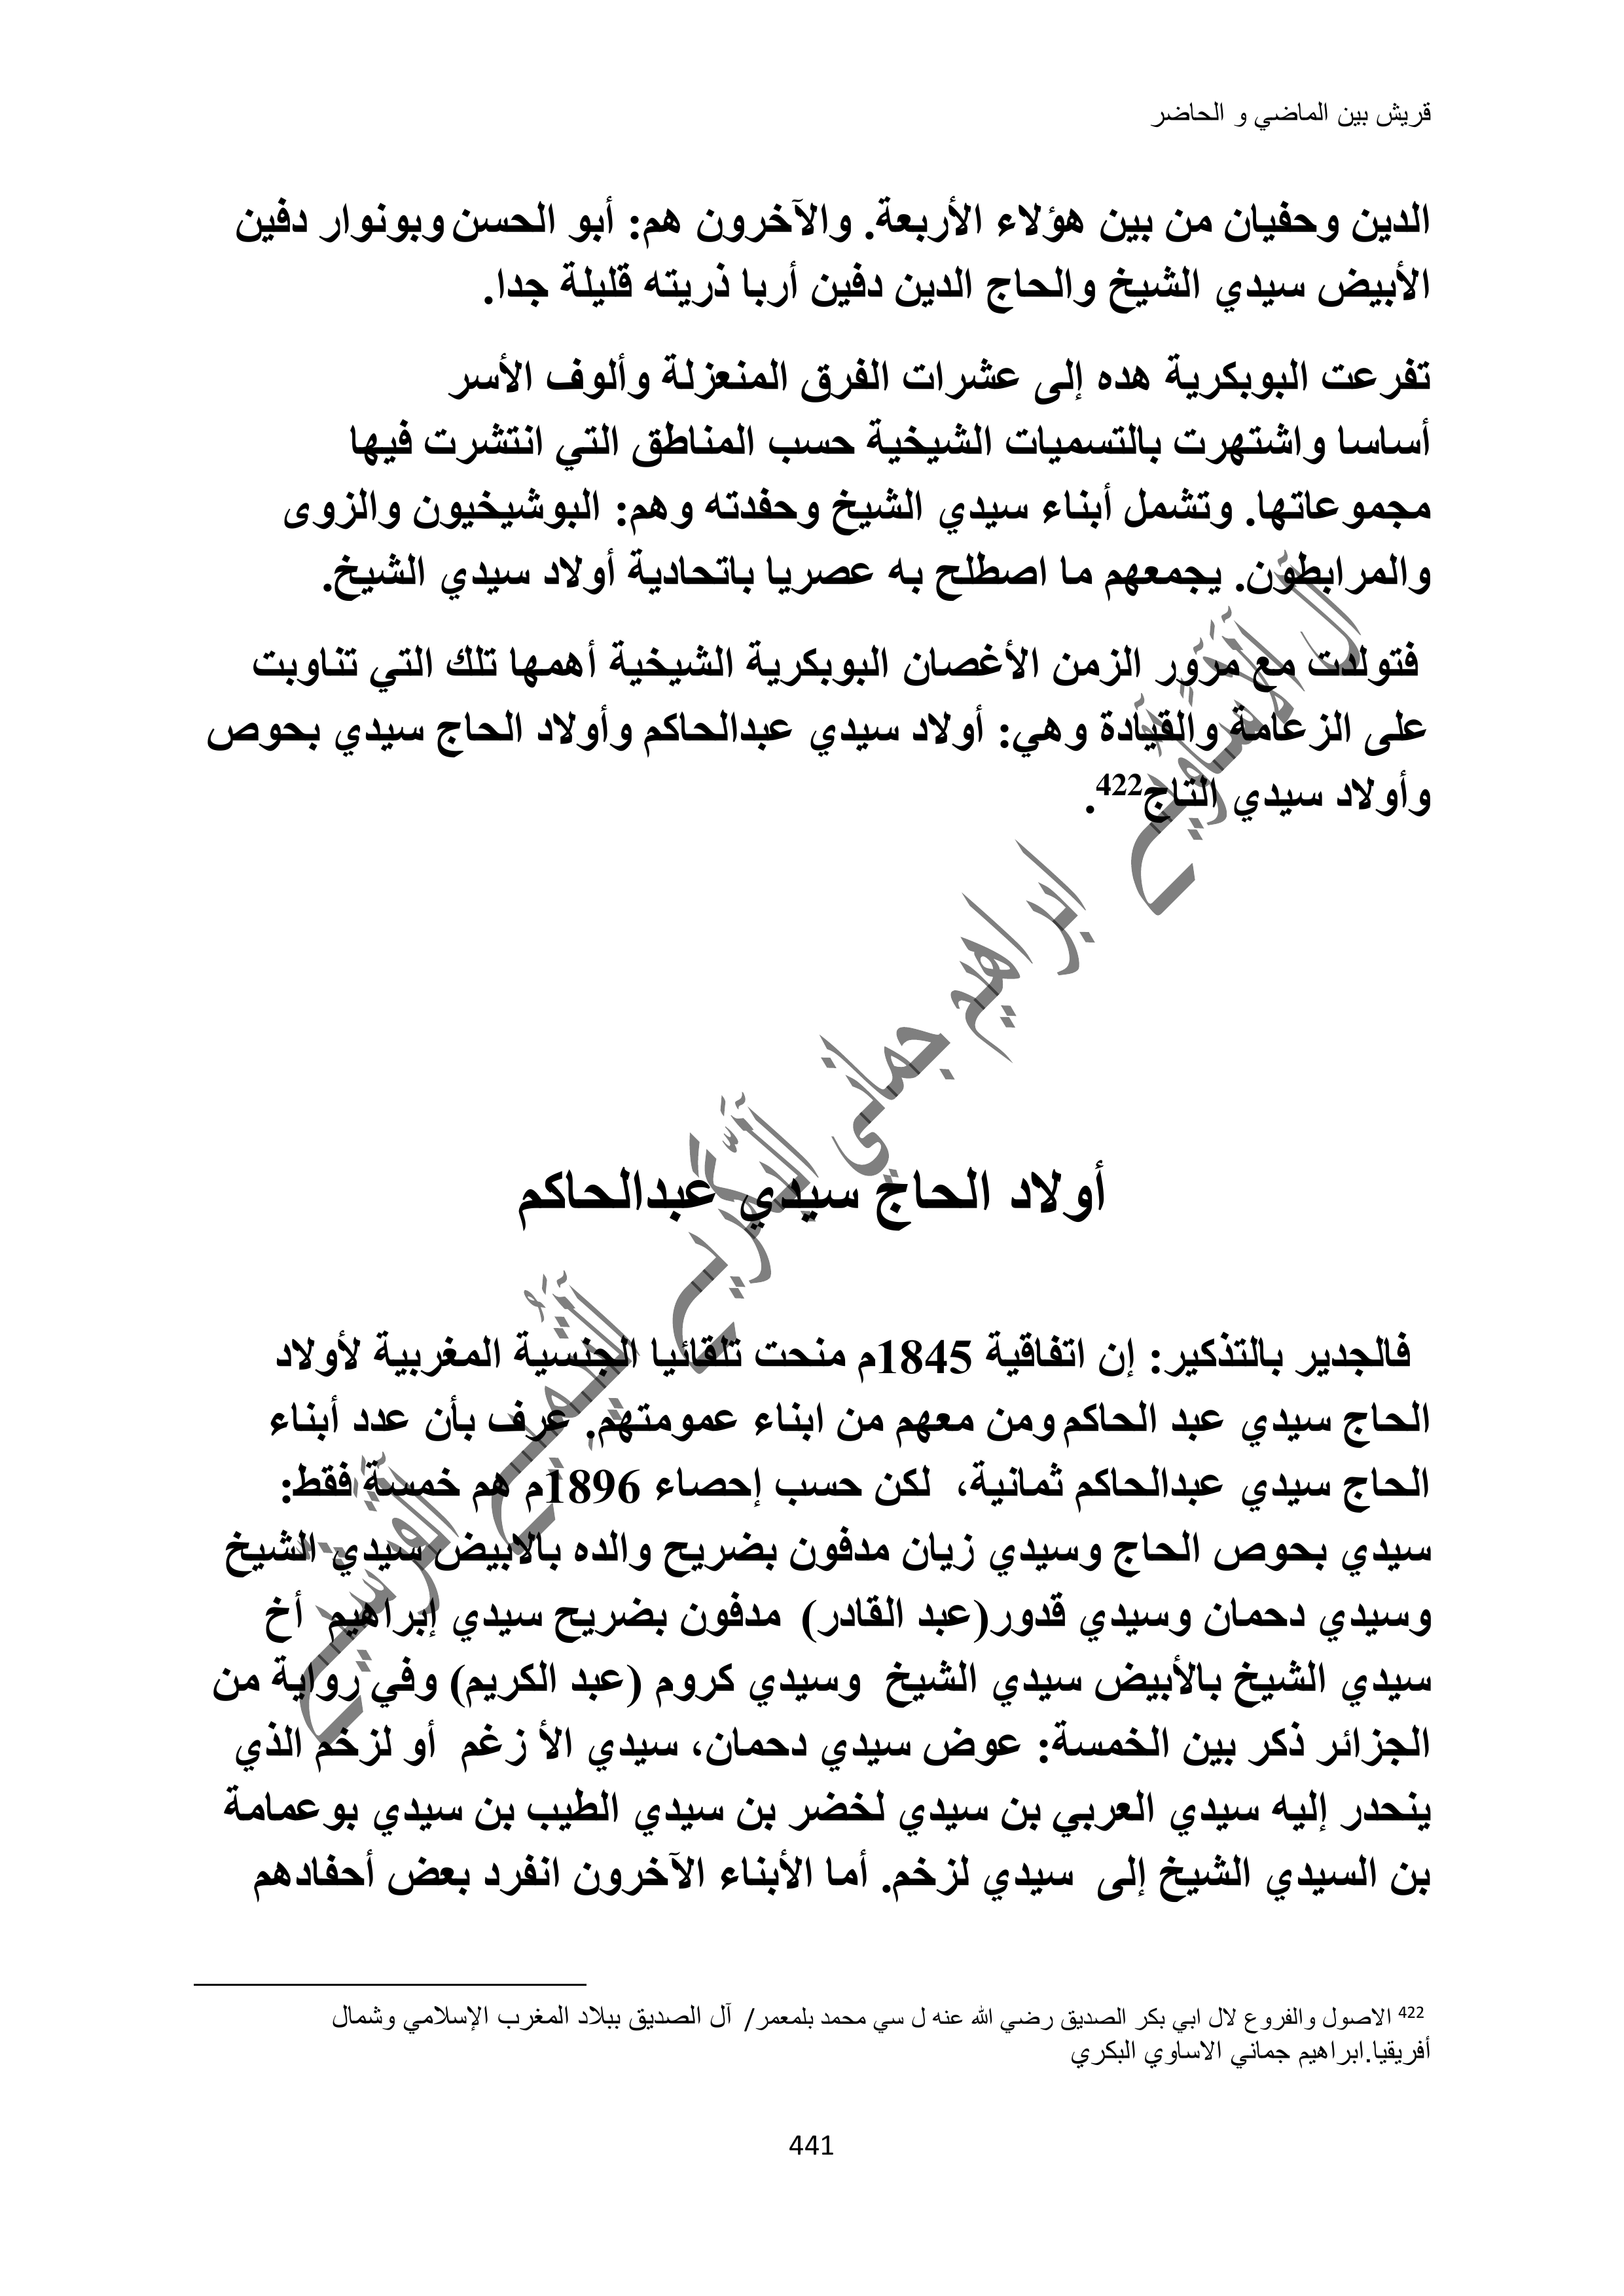 قريش بين الماضي و الحاضر
الدين وحفيان من بين هؤلاء الأربعة. والآخرون هم: أبو الحسن وبونوار دفين
الأبيض سيدي الشيخ والحاج الدين دفين أربا ذريته قليلة جدا.
تفرعت البوبكرية هده إلى عشرات الفرق المنعزلة وألوف الأسر
أساسا واشتهرت بالتسميات الشيخية حسب المناطق التي انتشرت فيها
مجموعاتها. وتشمل أبناء سيدي الشيخ وحفدته وهم: البوشيخيون والزوى
والمرابطون. يجمعهم ما اصطلح به عصريا باتحادية أولاد سيدي الشيخ.
فتولدت مع مرور الزمن الأغصان البوبكرية الشيخية أهمها تلك التي تناوبت
على الزعامة والقيادة وهي: أولاد سيدي عبدالحاكم وأولاد الحاج سيدي بحوص
وأولاد سيدي التاج422.
أولاد الحاج سيدي عبدالحاكم
فالجدير بالتذكير: إن اتفاقية 1845م منحت تلقائيا الجنسية المغربية لأولاد
الحاج سيدي عبد الحاكم ومن معهم من ابناء عمومتهم. عرف بأن عدد أبناء
الحاج سيدي عبدالحاكم ثمانية، لكن حسب إحصاء 1896م هم خمسة فقط:
سيدي بحوص الحاج وسيدي زيان مدفون بضريح والده بالابيض سيدي الشيخ
وسيدي دحمان وسيدي قدور(عبد القادر) مدفون بضريح سيدي إبراهيم أخ
سيدي الشيخ بالأبيض سيدي الشيخ وسيدي كروم (عبد الكريم) وفي رواية من
الجزائر ذكر بين الخمسة: عوض سيدي دحمان، سيدي الأ زغم أو لزخم الذي
ينحدر إليه سيدي العربي بن سيدي لخضر بن سيدي الطيب بن سيدي بوعمامة
بن السيدي الشيخ إلى سيدي لزخم. أما الأبناء الآخرون انفرد بعض أحفادهم
422 الاصول والفروع لال ابي بكر الصديق رضي الله عنه ل سي محمد بلمعمر/ آل الصديق ببلاد المغرب الإسلامي وشمال
أفريقيا.ابراهيم جماني الاساوي البكري
441
آل الاساوي ابراهيم جماني البكري التيمي القرشي